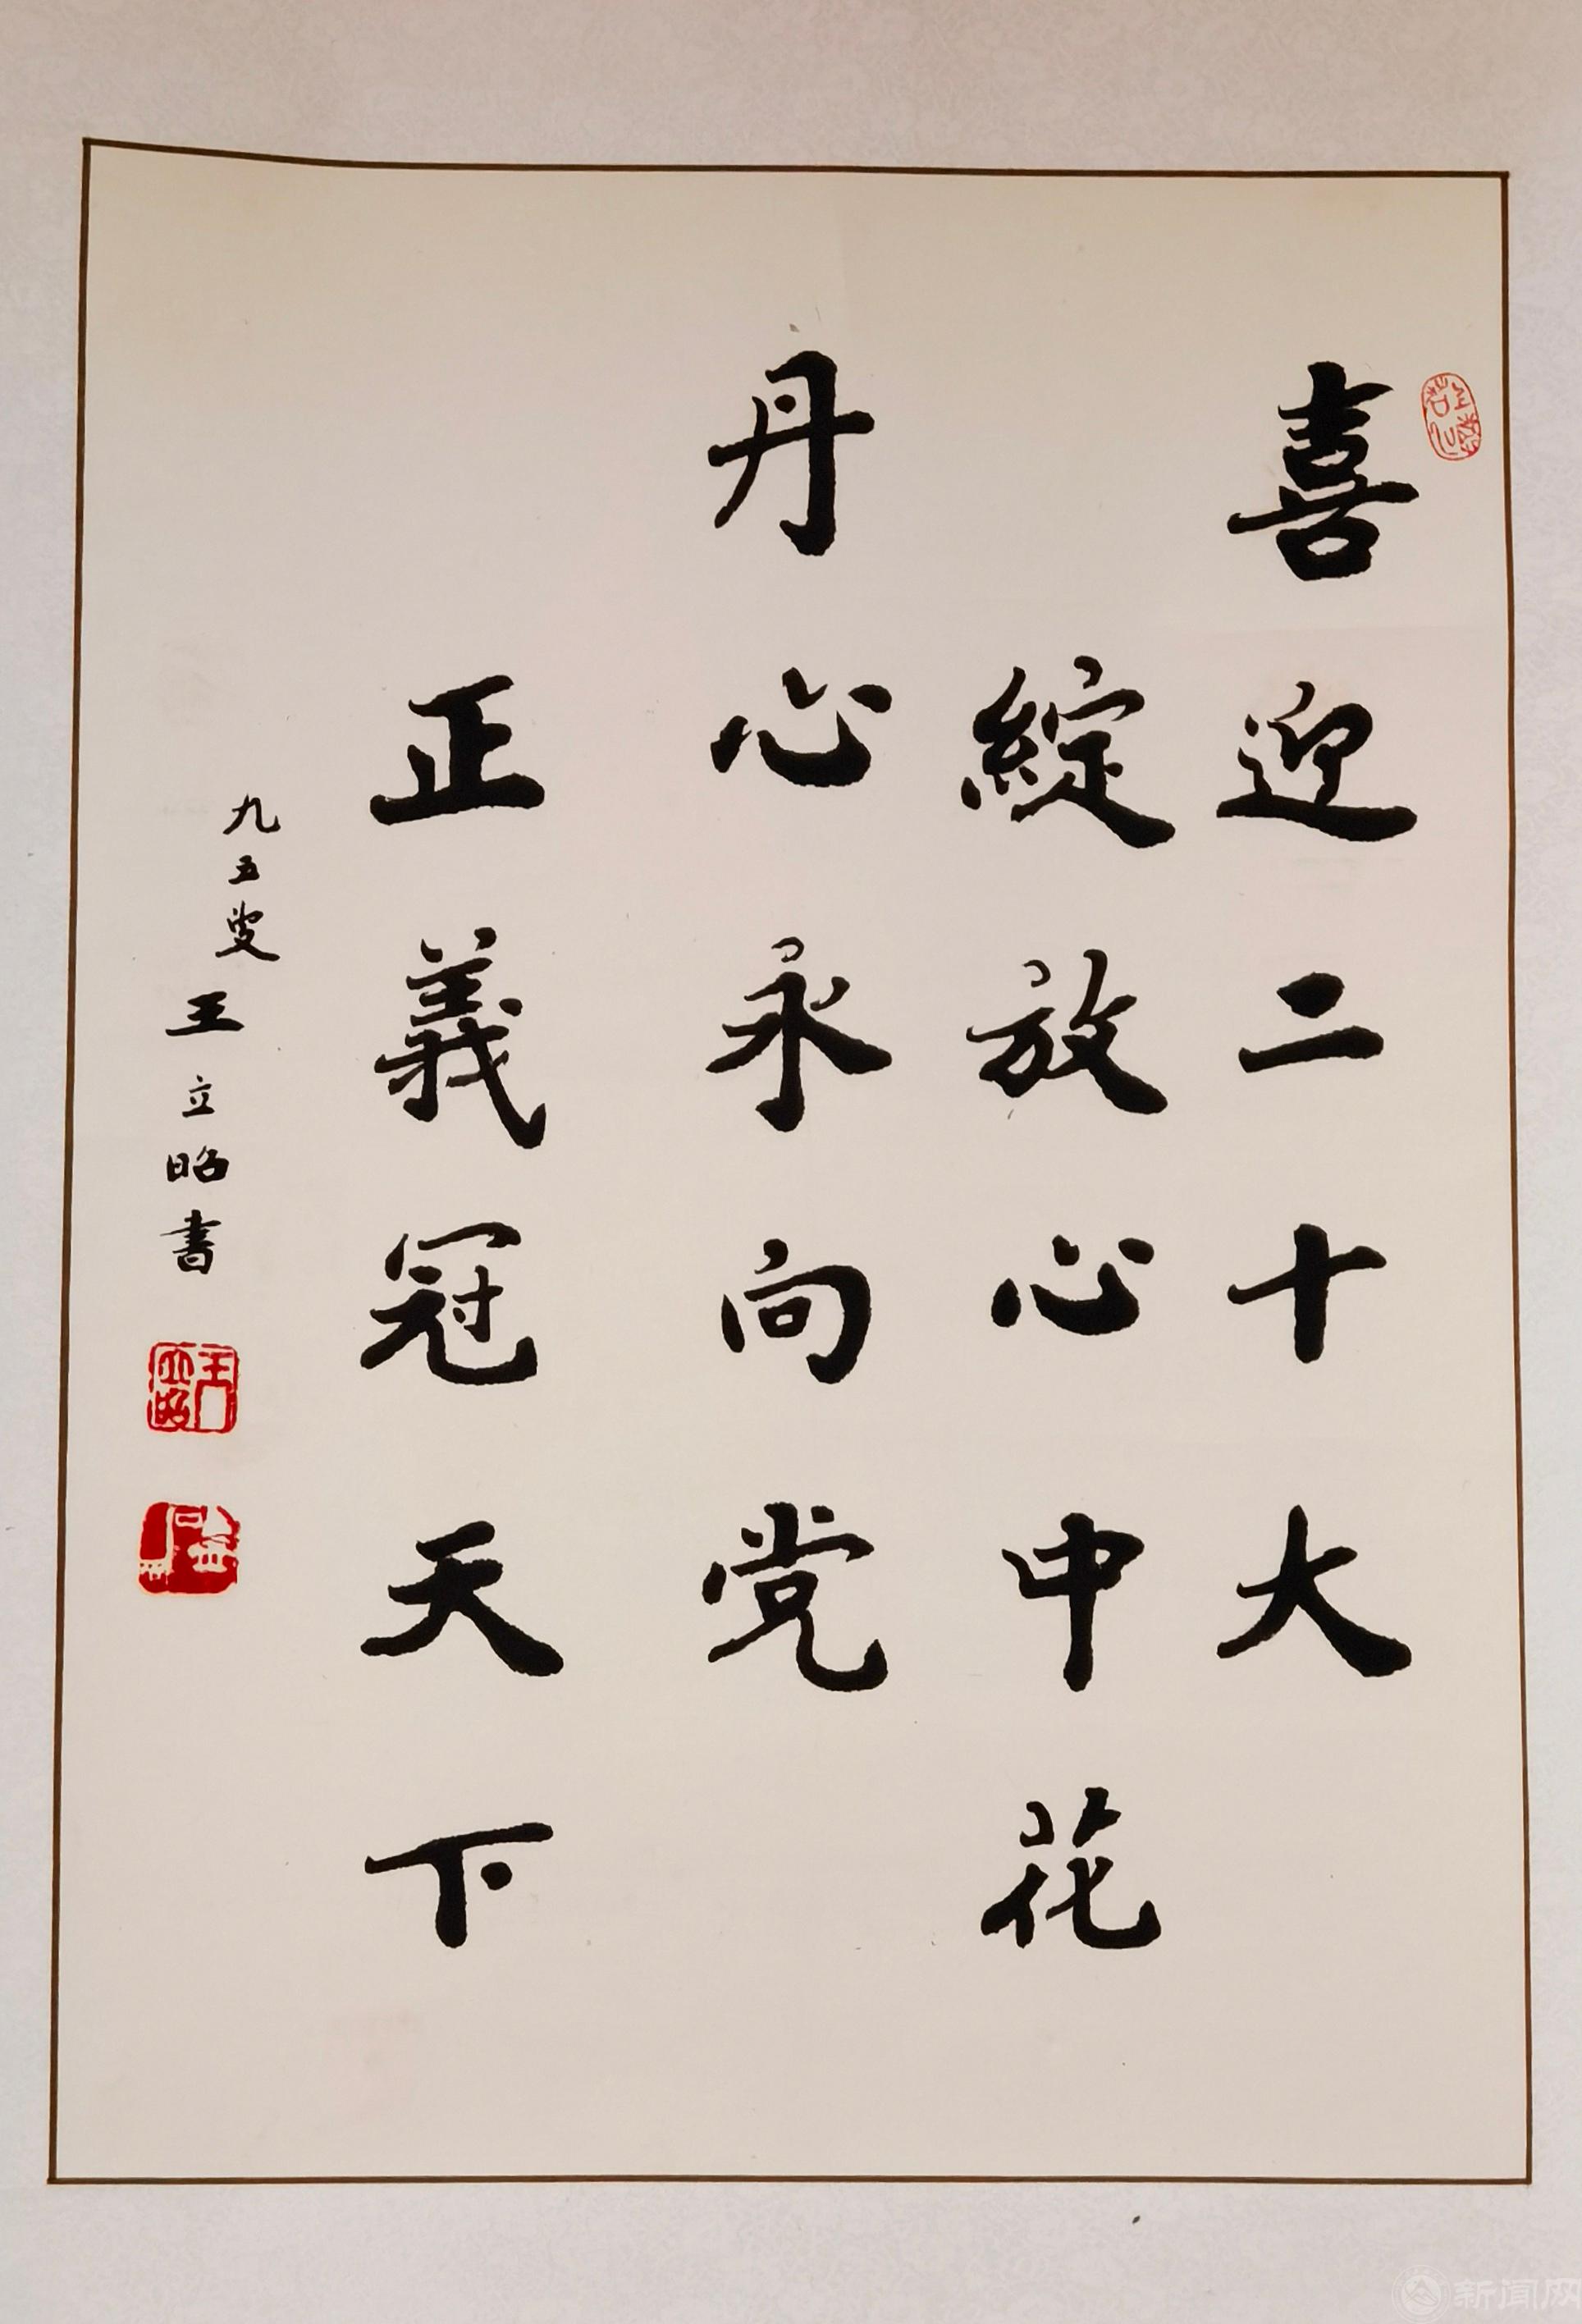 喜迎二十大
綻放心中花
丹心永向党
正義冠天下
九五叟
王立昭書
新闻网